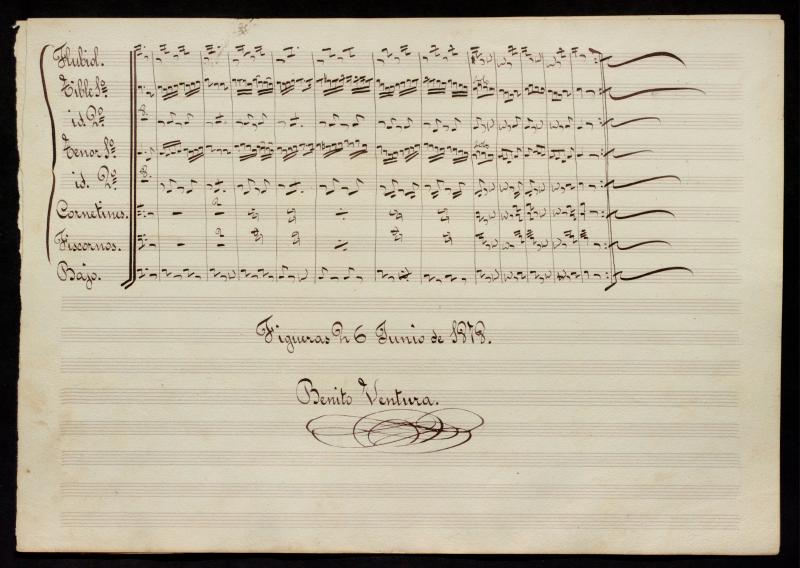 Flubiol.
Tible 1º
id. 2º
Tenor 1º
id. 2º
Cornetines.
Fiscornos.
Bajo.
Figueras 26 Junio de 1878.
Benito Ventura.